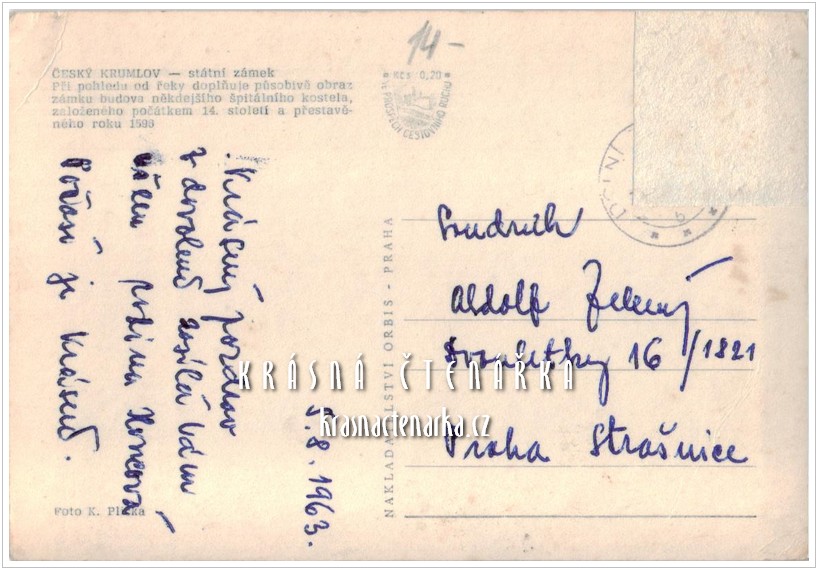 14-
ČESKÝ KRUMLOV — státní zámek
Při pohledu od řeky doplňuje působivě obraz
zámku budova někdejšího špitálního kostela,
založeného počátkem 14. století a přestavě-
ného roku 1598
Kčs 0,20
VE PROSPĚCH CESTOVNÍHO RUCHU
Krásný pozdrav
z dovolené zasílá Vám
všem rodina
Počasí je krásné.
5.8.1963.
NAKLADATELSTVÍ ORBIS - PRAHA
Soudruh
Adolf Zelený
16/1821
Praha Strašnice
KRÁSNÁ ČTENÁŘKA
krasnactenarka.cz
Foto K. Plicka